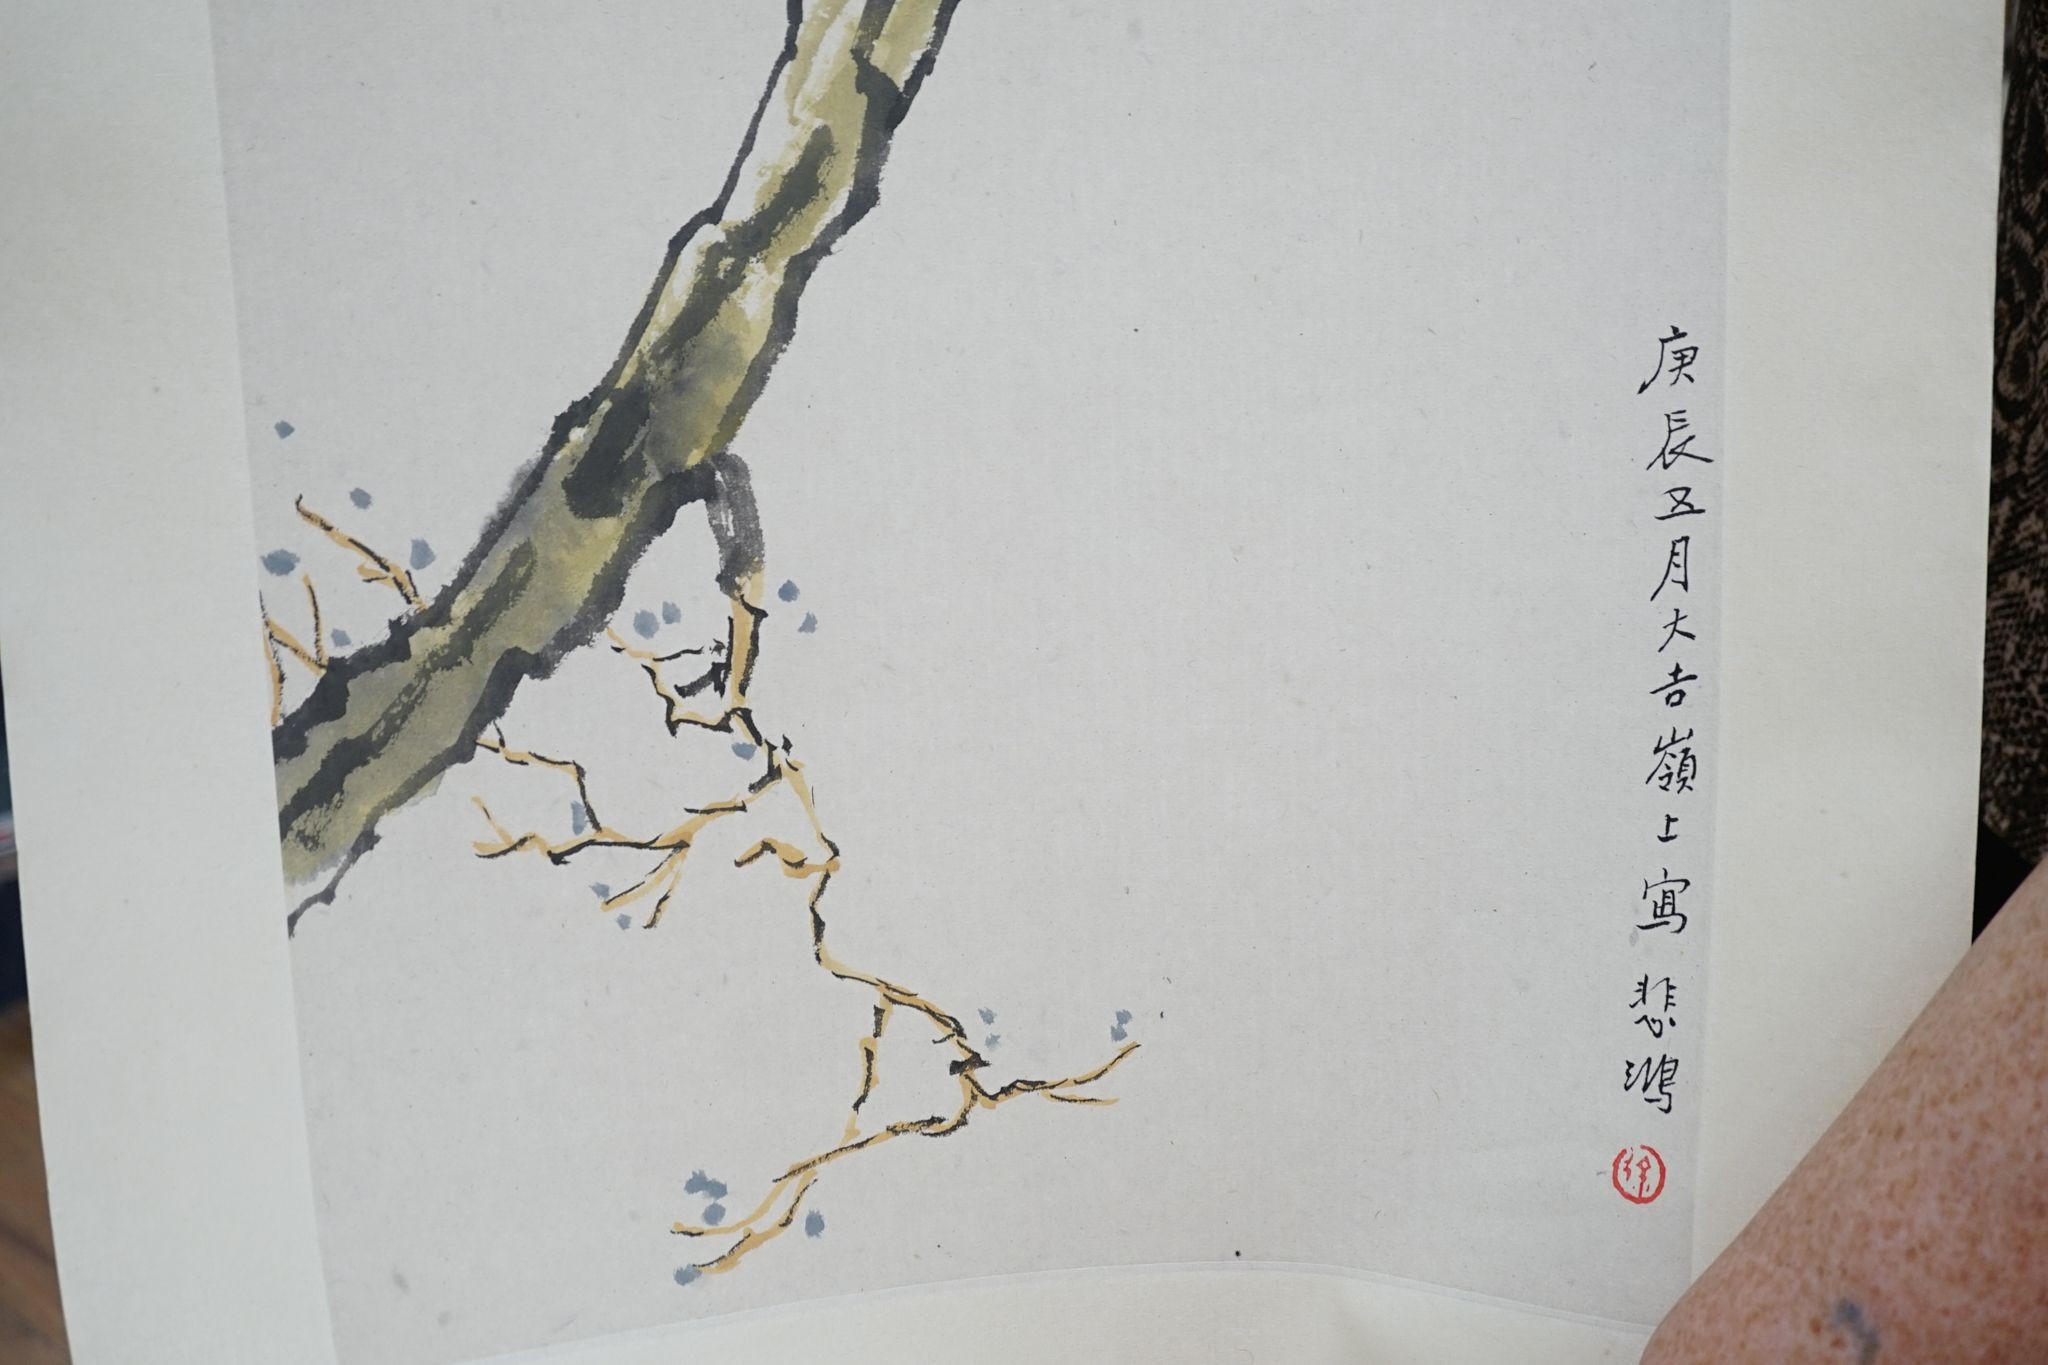 庚辰五月大吉嶺上寫 悲鴻
徐